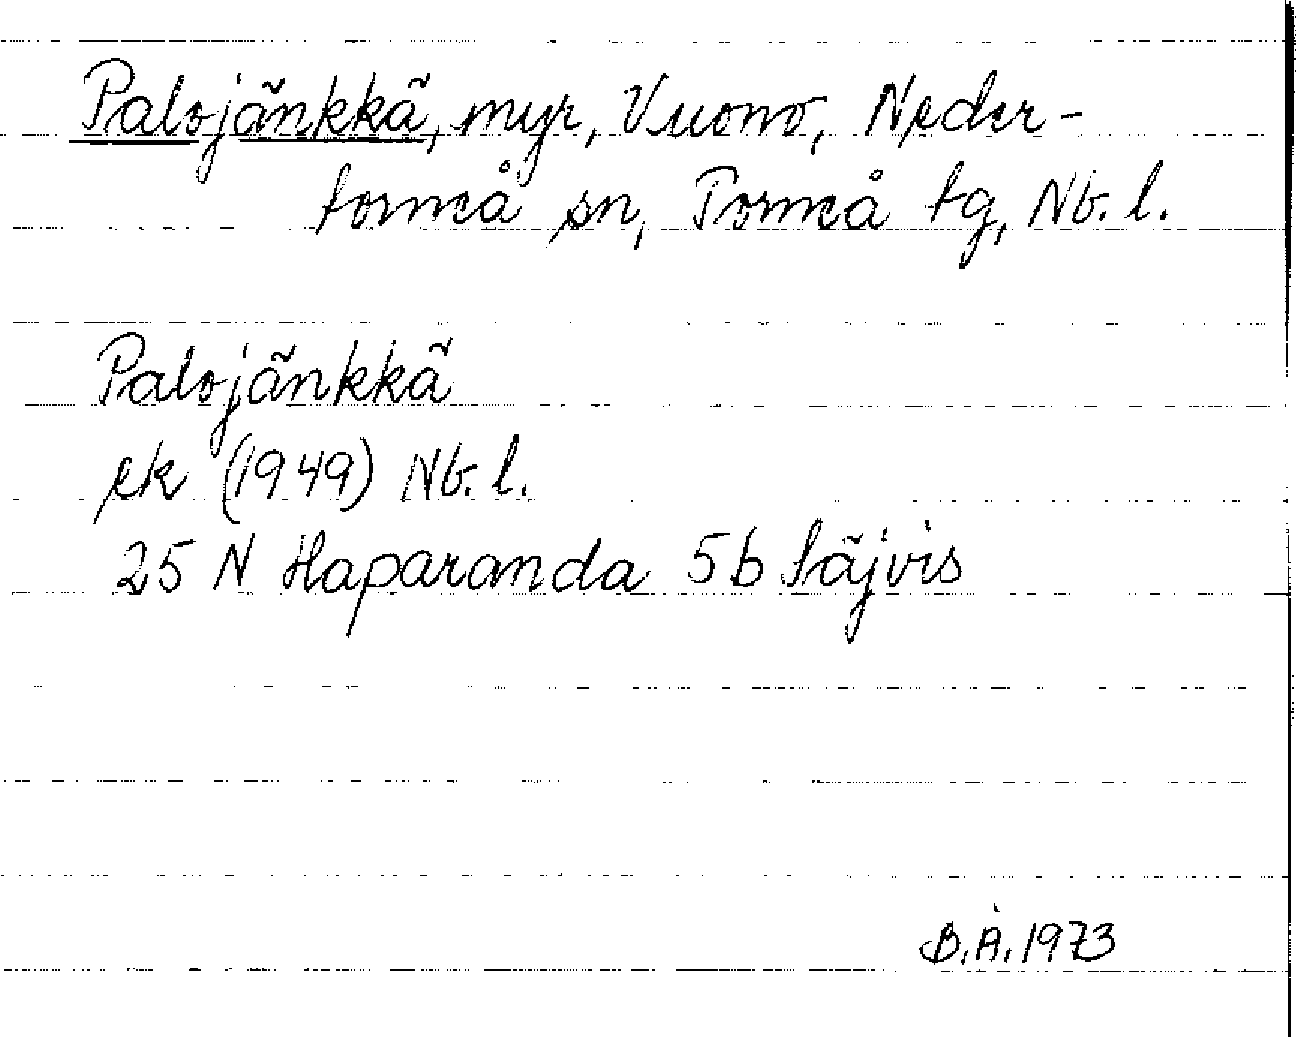 Palojänkkä, myr, Vuono, Neder-
torneå sn, Torneå tg, Nb. l.
Palojänkkä
ek (1949) Nb. l.
25 N Haparanda 5b Säjvis
B.Å. 1973